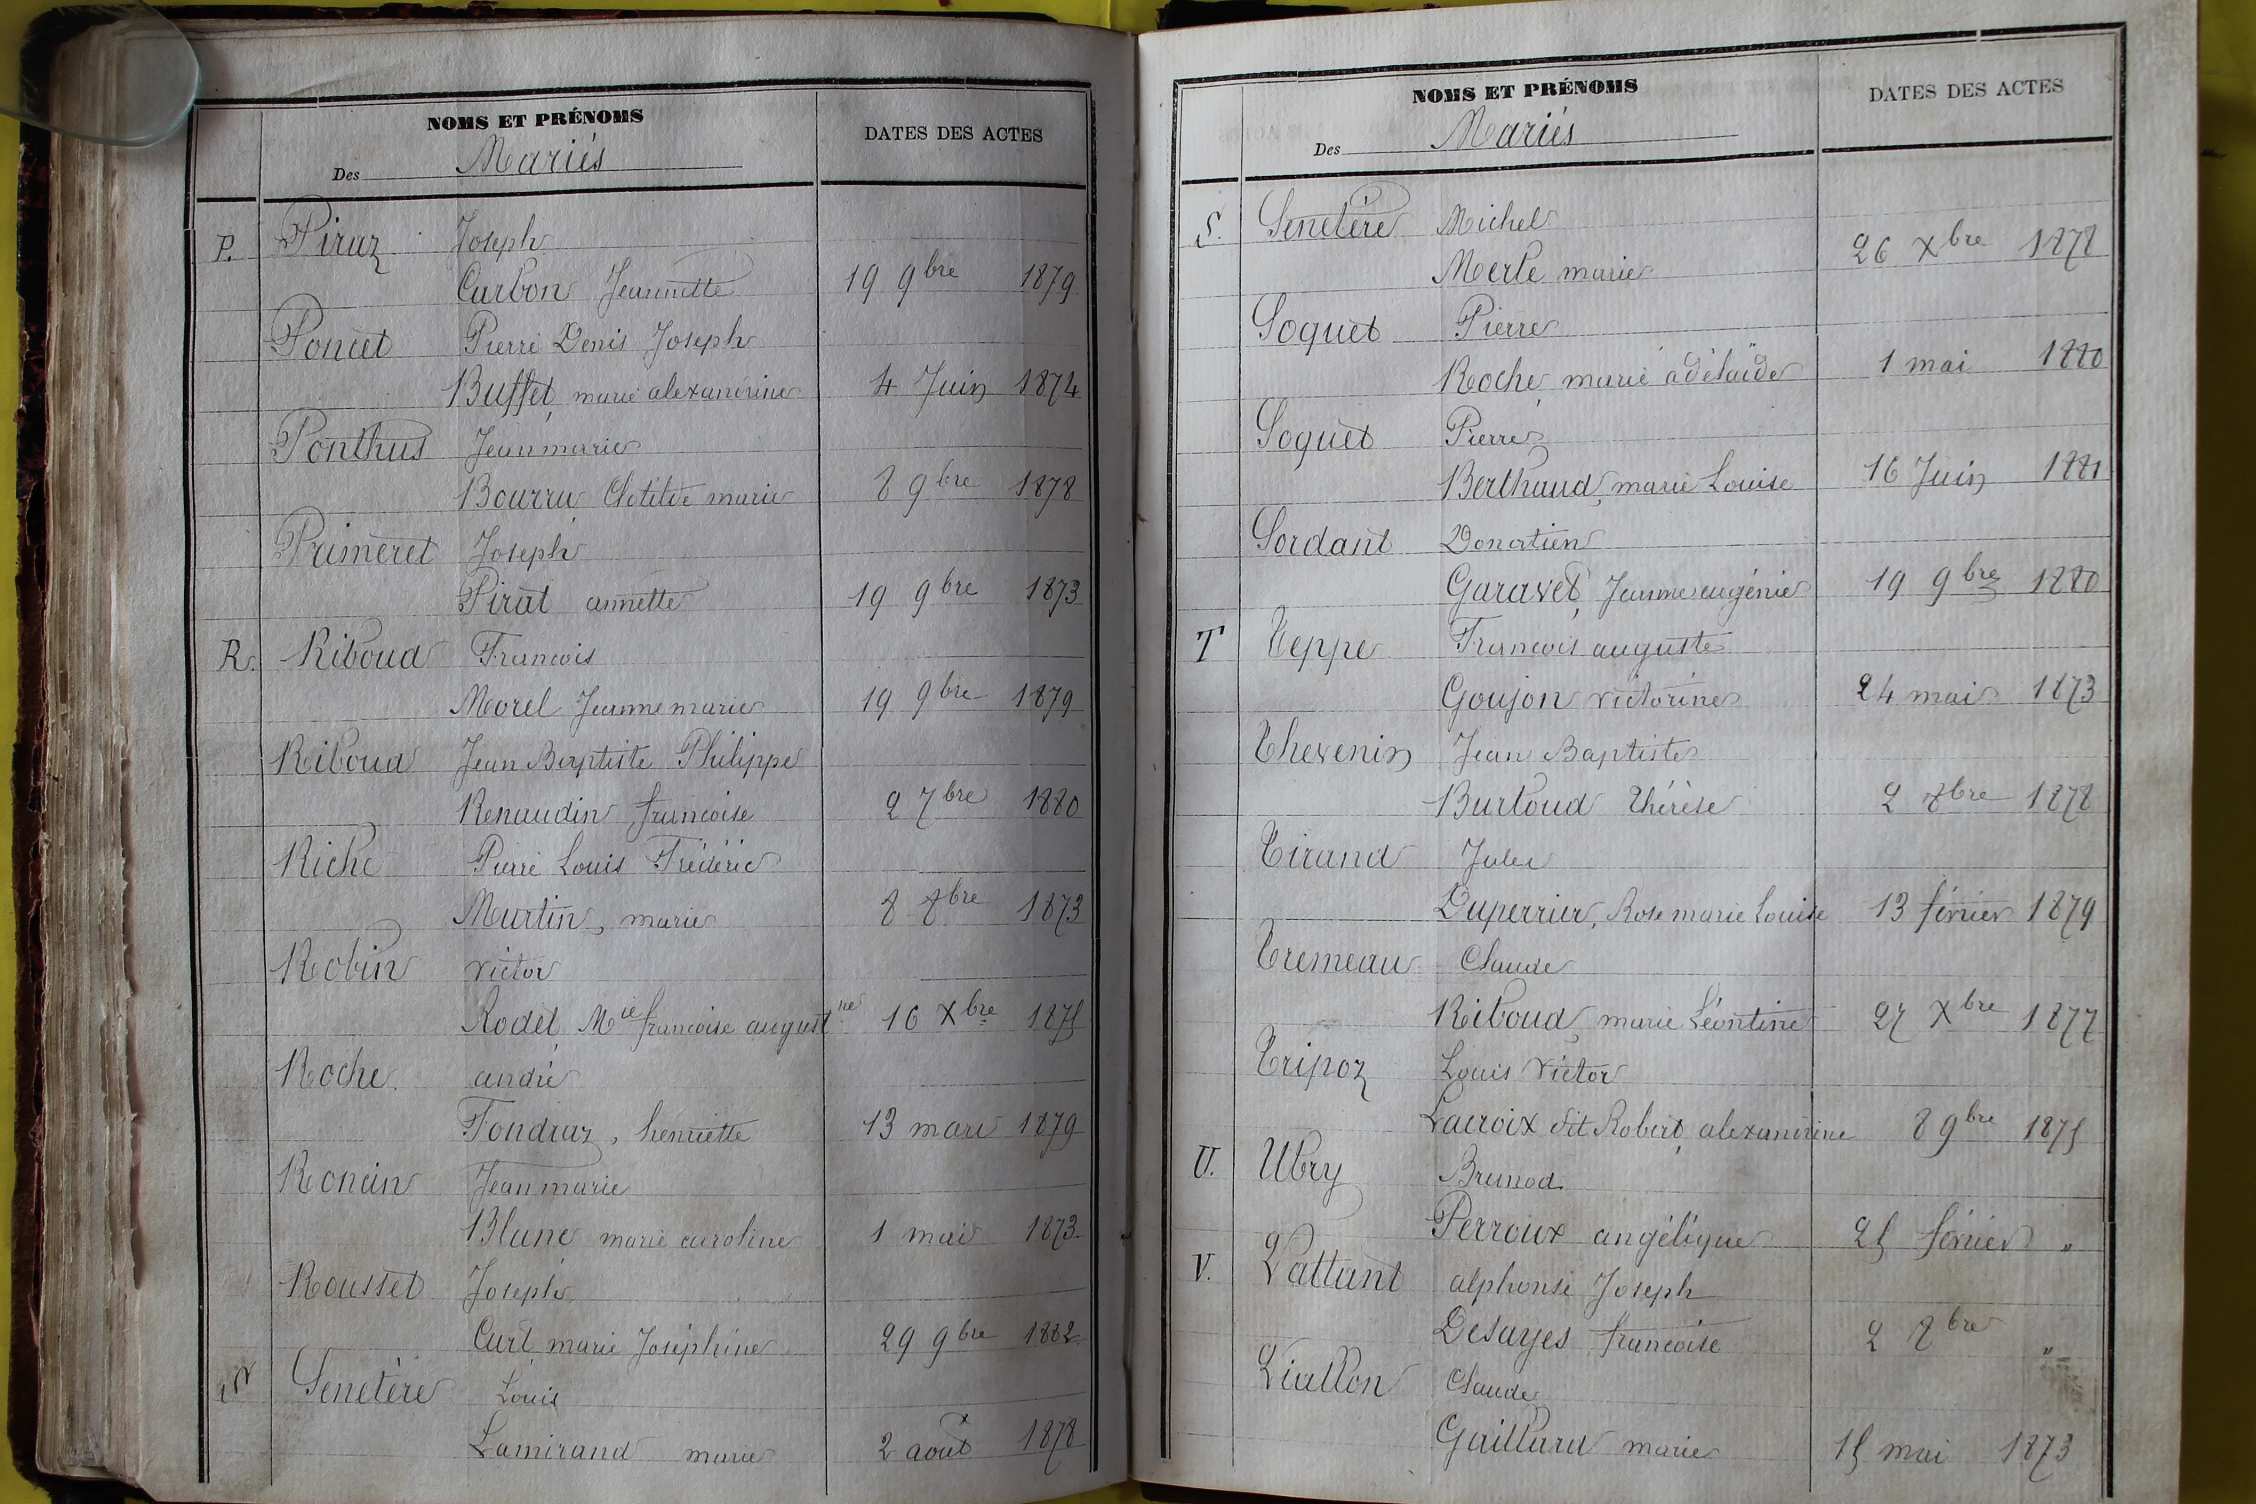 NOMS ET PRÉNOMS
Des Mariés
DATES DES ACTES
P. Piraz Joseph
Carbon Jeannette 19 9bre 1879
Poncet Pierre Denis Joseph
Buffet, marie alexandrine 4 Juin 1874
Ponthus Jean marie
Bourru Clotilde marie 8 9bre 1878
Primeret Joseph
Pirat annette 19 9bre 1873
R. Riboud Francois
Morel Jeanne marie 19 9bre 1879
Riboud Jean Baptiste Philippe
Renaudin francoise 2 7bre 1880
Riche Pierre Louis Frédéric
Martin, marie 8 8bre 1873
Robin victor
Rodet, Mie francoise augustne 16 Xbre 1875
Roche andré
Fondraz, henriette 13 mars 1879
Ronein Jean marie
Blanc marie caroline 1 mai 1873
Rousset Joseph
Curt marie Joséphine 29 9bre 1882
S Senetère Louis
Lamirand marie 2 aout 1878
NOMS ET PRÉNOMS
Des Mariés
DATES DES ACTES
S. Senetère Michel
Merle marie 26 Xbre 1878
Soquet Pierre
Roche, marie adélaïde 1 mai 1880
Soquet Pierre
Berthaud, marie Louise 16 Juin 1881
Sordant Donatien
Garavet, Jeanne eugénie 19 9bre 1880
T Teppe Francois auguste
Goujon victorine 24 mai 1873
Thevenin Jean Baptiste
Burtoud Thérèse 2 8bre 1878
Tirand Jules
Duperrier, Rose marie Louise 13 février 1879
Tremeau Claude
Riboud, marie Léontine 27 Xbre 1877
Tripoz Louis Victor
Lacroix dit Robert, alexandrine 8 9bre 1875
U. Ubry Brunod
Perroux angélique 25 février "
V. Vattant alphonse Joseph
Desayes francoise 2 8bre "
Viallon Claude
Gaillard marie 15 mai 1873